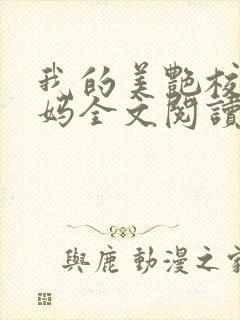 我的美艷校
妈全文閱讀
與鹿 動漫之家